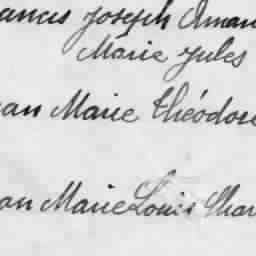 ancis Joseph Aman
Marie Jules
ean Marie Théodore
ean Marie Louis Char